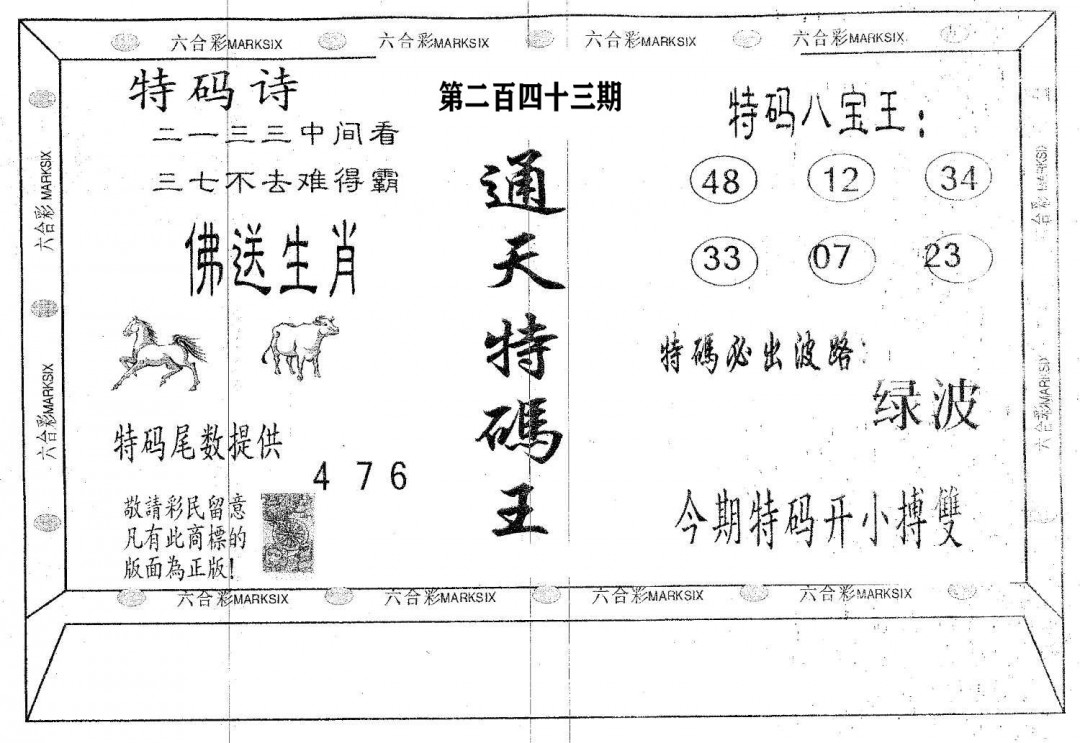 六合彩MARKSIX 六合彩MARKSIX 六合彩MARKSIX 六合彩MARKSIX
特码诗
二一三三中间看
三七不去难得霸
佛送生肖
特码尾数提供
4 7 6
敬請彩民留意
凡有此商標的
版面為正版!
第二百四十三期
通天特碼王
特码八宝王:
48 12 34
33 07 23
特碼必出波路:
绿波
今期特码开小搏雙
六合彩 MARKSIX
六合彩MARKSIX
六合彩 MARKSIX
六合彩MARKSIX
六合彩MARKSIX 六合彩MARKSIX 六合彩MARKSIX 六合彩MARKSIX